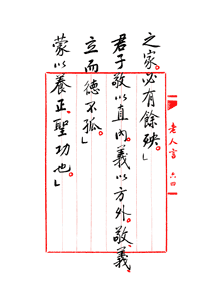 之家必有餘殃。」
君子敬以直內。義以方外。敬義
立而德不孤。」
蒙以養正。聖功也。」
老人言 六四